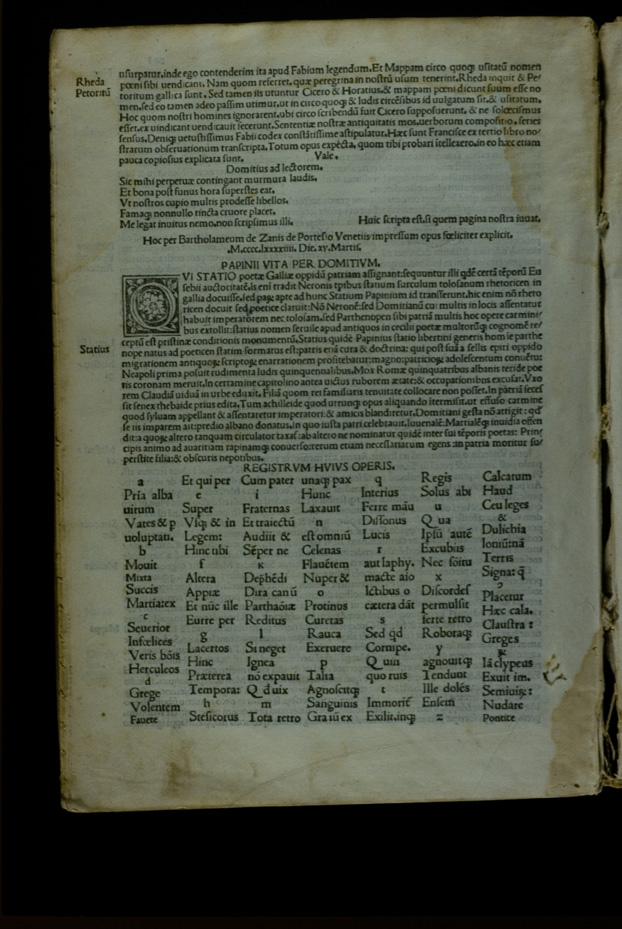 usurpatur, inde ego contenderim ita apud Fabium legendum. Et Mappam circo quoqȝ usitatū nomen
Rheda
pœni sibi uendicant. Nam quom referret, quæ peregrina in nostrū usum uenerint. Rheda inquit & Pe/
Petoritū
toritum gallica sunt. Sed tamen iis utuntur Cicero & Horatius. & mappam pœni dicunt suum esse no
men, sed eo tamen adeo passim utimur, ut in circo quoqȝ & ludis circēsibus id uulgatum sit, & usitatum.
Hoc quom nostri homines ignorarent, ubi circo scribendū fuit Cicero supposuerunt, & ne solœcismus
esset, ex uindicant uendicauit fecerunt. Sententiæ nostræ antiquitatis mos, uerborum compositio, series
sensus. Deniqȝ uetustissimus Fabii codex constātissime astipulatur. Hæc sunt Francisce ex tertio libro no/
strarum obseruationum transcripta. Totum opus expecta, quom tibi probari itellexero, in eo hæc etiam
pauca copiosius explicata sunt. Vale.
Domitius ad lectorem.
Sic mihi perpetuæ contingant murmura laudis.
Et bona post funus hora superstes eat.
Vt nostros cupio multis prodesse libellos.
Famaqȝ nonnullo tincta cruore placet.
Me legat inuitus nemo, non scripsimus illi. Huic scripta est, si quem pagina nostra iuuat.
Hoc per Bartholameum de Zanis de Portesio Venetiis impressum opus fœliciter explicit.
.M.cccc.lxxxxiiii. Die. xv. Martii.
PAPINII VITA PER DOMITIVM.
VI STATIO poetæ Galliæ oppidū patriam assignant: sequuntur illi qdē certā tēporū Eu
sebii auctoritatē. is eni tradit Neronis tpibus statium surculum tolosanum rhetoricen in
gallia docuisse, sed paqȝ apte ad hunc Statium Papinium id transferunt, hic enim nō rheto
ricen docuit sed poetice claruit: Nō Neronē: sed Domitianū cu: multis in locis assentatur
habuit imperatorem nec tolosam, sed Parthenopen sibi patriā multis hoc opere carmini/
bus extollit: statius nomen seruile apud antiquos in cecilii poetæ multorūqȝ cognomē re/
ceptū est pristinæ conditionis monumentū. Statius quidē Papinius statio libertini generis homīe parthe
Statius
nope natus ad poeticen statim formatus est: patris eni cura & doctrina: qui post suā a sellis epiri oppido
migrationem antiquoqȝ scriptoqȝ enarrationem profitebatur: magno: patricioqȝ adolescentum conuētu:
Neapoli prima posuit rudimenta ludis quinquennalibus. Mox Romæ quinquatribus albanis teride poe
tis coronam meruit. In certamine capitolino antea uictus ruborem ætate: & occupationibus excusat. Vxo
rem Claudiā uiduā in urbe eduxit. Filiā quom rei familiaris tenuitate collocare non posset. In patriā seces
sit senex thebaide prius edita. Tum achilleide quod utrunqȝ opus aliquando itermisit, ut effuso carmine
quod syluam appellant & assentaretur imperatori: & amicis blandiretur. Domitiani gesta nō attigit: qd'
se iis imparem ait: predio albano donatus. In quo iusta patri celebrauit. Iuuenalē: Martialēqȝ inuidia offen
dit: a quoqȝ altero tanquam circulator taxat: ab altero ne nominatur quidē inter sui tēporis poetas: Prin/
cipis animo ad auaritiam rapinamqȝ conuerso: rerum etiam necessariarum egens: in patria moritur su/
perstite filia: & obscuris nepotibus.
REGISTRVM HVIVS OPERIS.
a Et qui per Cum pater unaqȝ pax q Regis Calcatum
Pria alba e i Hunc Interius Solus abi Haud
uirum Super Fraternas Laxauit Ferre māu u Ceu leges
Vates & p Visqȝ & in Et traiectū n Dissonus Q ua &
uoluptati. Legem: Audiit & est omniū Lucis Ipsū autē Dulichia
b Hinc ubi Sēper ne Celenas r Excubiis Ioniū: nā
Mouit f κ Flauētem aut Iaphy. Nec soitu Terris
Mixta Altera Dephēdi Nuper & macte aio x Signa: q̄
Succis Appiæ Dira can ū o Ictibus o Discordes ɔ
Martiatex Et nūc ille Parthaōiæ Protinus cætera dāt permulsit Placetur
c Eurre per Reditus Curetas s ferte retro Hæc cala.
Seuerior g l Rauca Sed qd Roboraqȝ Claustra :
Infœlices Lacertos Si neget Exeruere Cornipe. y Greges
Veris bōis Hinc Ignea p Q uin agnouitqȝ ꝝ
Herculeos Præterea nō expauit Talia quo ruis Tendunt Iā clypeus
d Tempora: Q d uix Agnoscitqȝ t Ille dolēs Exuit im.
Grege h m Sanguinis Immorit̄ Ensem Semiuiqȝ:
Volentem Stesicorus Tota retro Gra iū ex Exilit, inqȝ z Nudare
Fauete Pontice